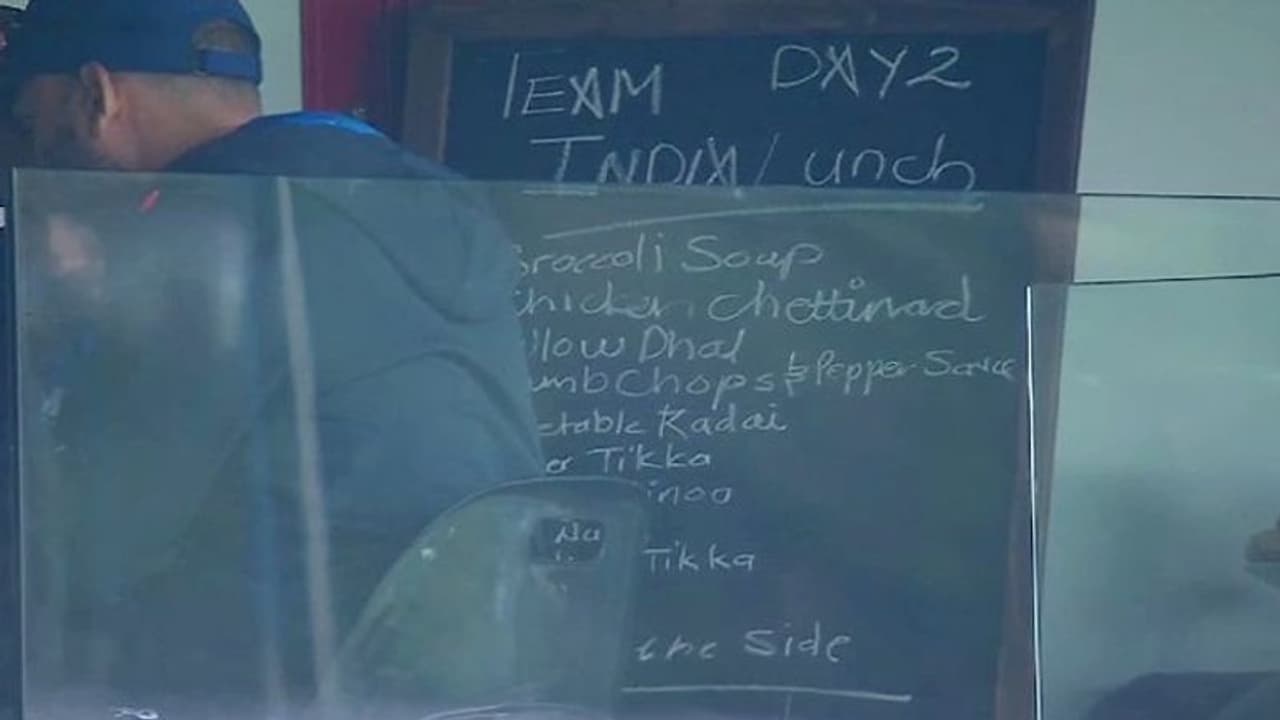 TEAM DAY 2
INDIA Lunch
Broccoli Soup
Chicken Chettinad
llow Dhal
amb Chops & Pepper Sauce
etable Kadai
er Tikka
inoa
Na
Tikka
the side